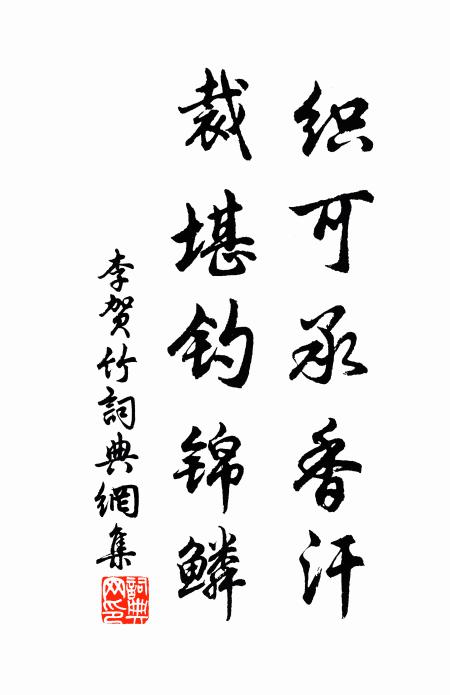 织可承香汗
裁堪钓锦鳞
李贺竹詞典網集
詞典网印